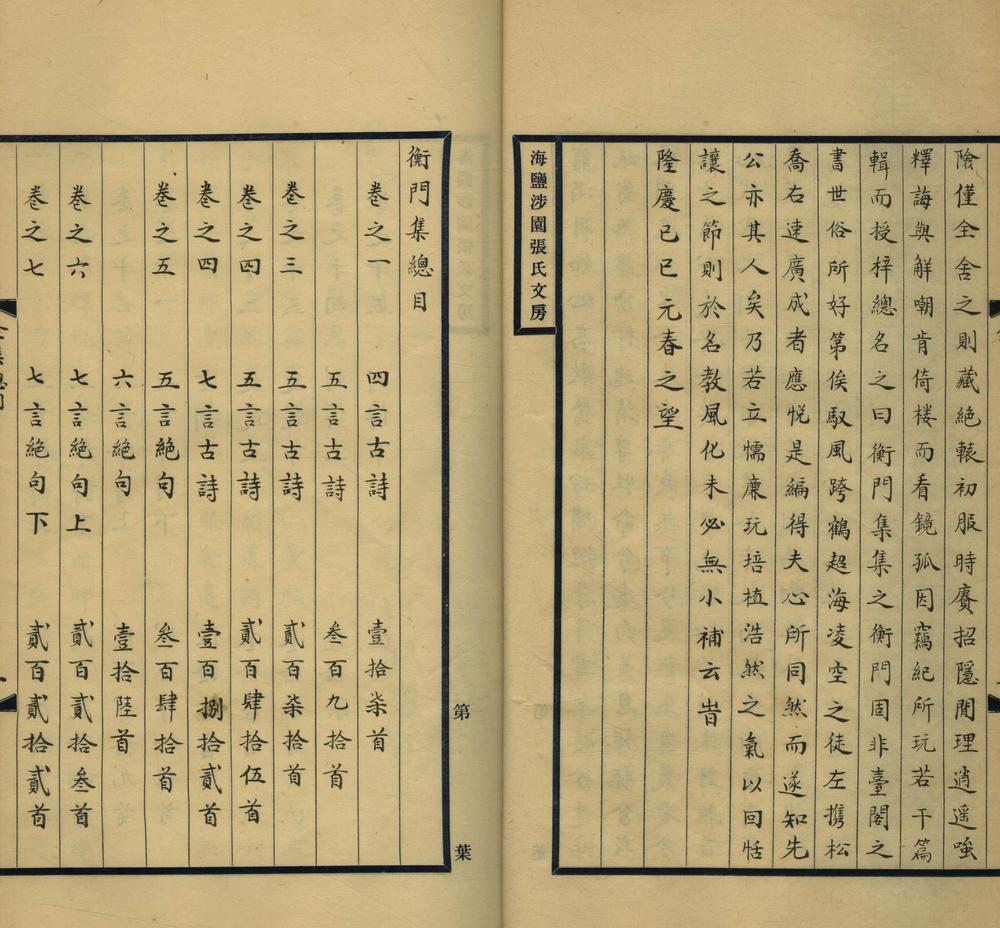 險僅全舍之則藏絕轅初服時賡招隱閒理逍遥嗤
釋誨與解嘲肯倚樓而看鏡孤因竊紀所玩若干篇
輯而授梓總名之曰衡門集集之衡門固非臺閣之
書世俗所好第俟馭風跨鶴超海凌空之徒左携松
喬右速廣成者應悦是編得夫心所同然而遂知先
公亦其人矣乃若立懦廉玩培植浩然之氣以回恬
讓之節則於名教風化未必無小補云旹
隆慶已巳元春之望
海鹽涉園張氏文房
衡門集總目
卷之一 四言古詩 壹拾柒首
五言古詩 叁百九拾首
卷之三 五言古詩 貳百柒拾首
卷之四 五言古詩 貳百肆拾伍首
卷之四 七言古詩 壹百捌拾貳首
卷之五 五言絕句 叁百肆拾首
六言絕句 壹拾陸首
卷之六 七言絕句上 貳百貳拾叁首
卷之七 七言絕句下 貳百貳拾貳首
第 葉